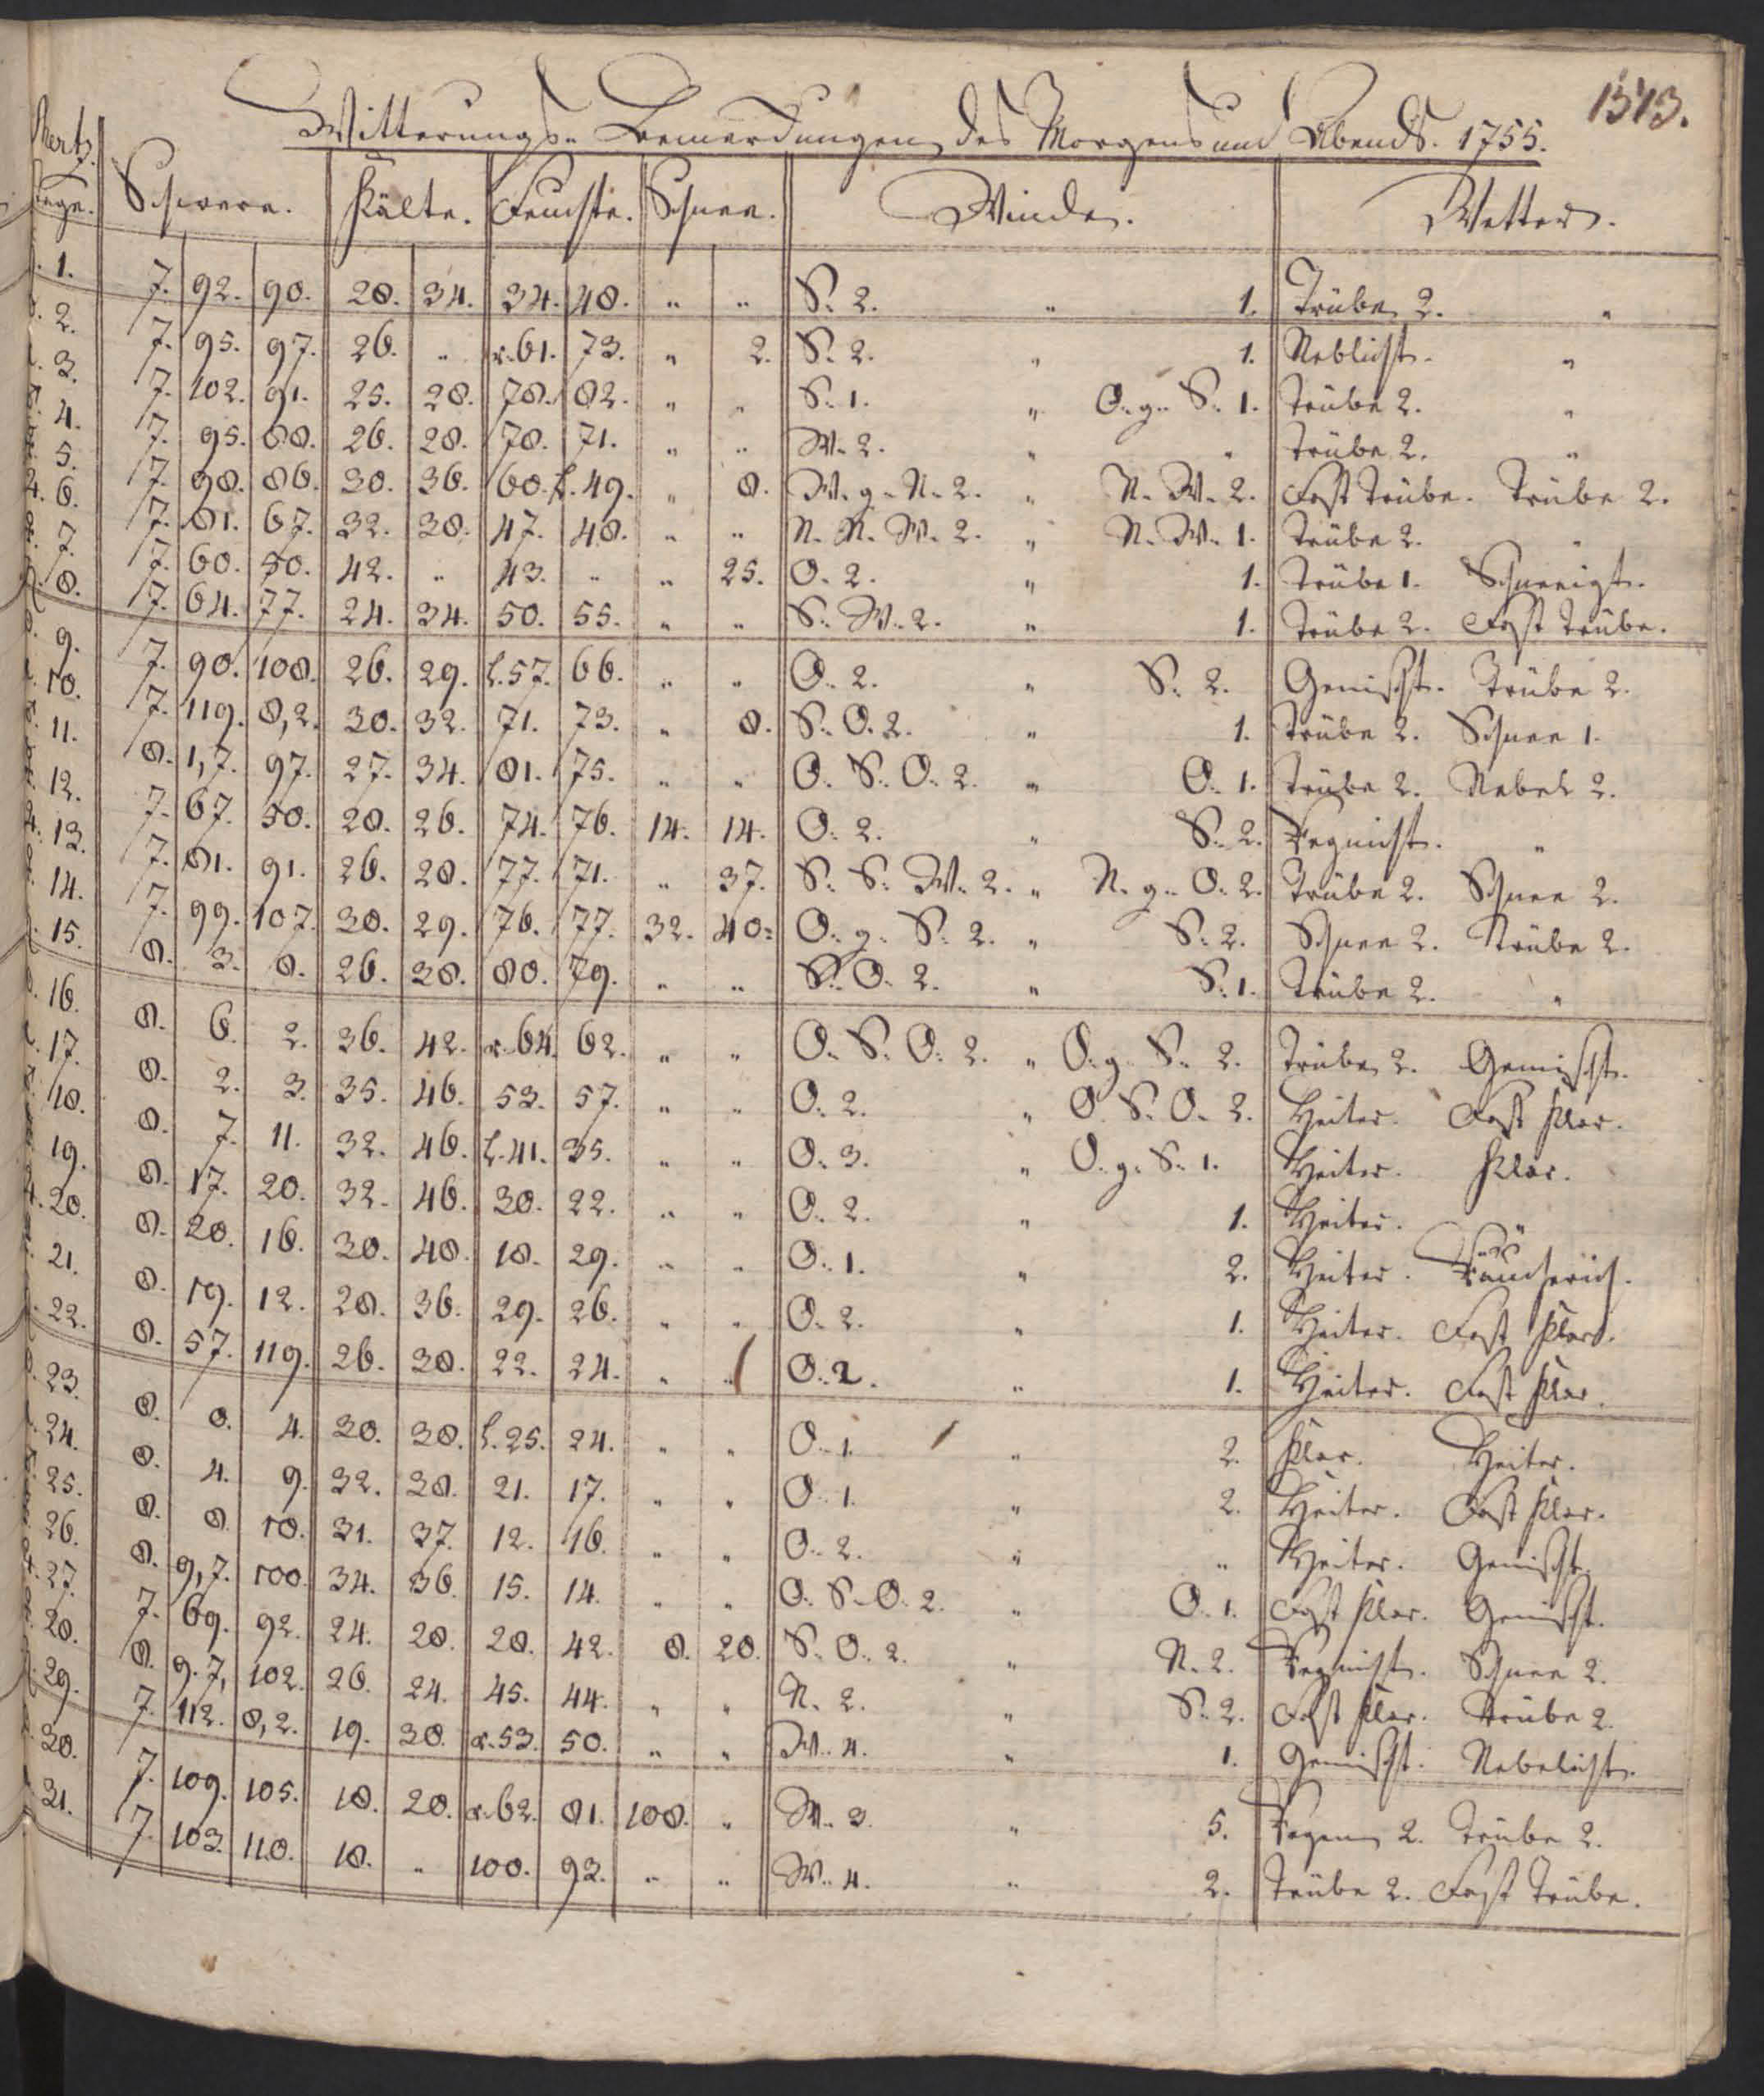 1513.
Witterungs- Bemerckungen des Morgens und Abends. 1755.
Mertz.
Tage. Schwere. Kälte. Feuchte. Schnee. Winde. Wetter.
1. 7. 92. 90. 28. 34. 34. 48. " " S. 2. " 1. Trübe 2. "
2. 7. 95. 97. 26. " r. 61. 73. " 2. S. 2. " 1. Neblicht. "
3. 7. 102. 91. 25. 28. 78. 82. " " S. 1. " O. g. S. 1. Trübe 2. "
4. 7. 95. 88. 26. 28. 78. 71. " " W. 2. " " Trübe 2. "
5. 7. 98. 86. 30. 36. 60. l. 49. " 8. W. g. N. 2. " N. W. 2. Fast Trübe. Trübe 2.
6. 7. 81. 67. 32. 38. 47. 48. " " N. N. W. 2. " N. W. 1. Trübe 2. "
7. 7. 60. 50. 42. " 43. " " 25. O. 2. " 1. Trübe 1. Schneeigt.
8. 7. 64. 77. 24. 34. 50. 55. " " S. W. 2. " 1. Trübe 2. Fast Trübe.
9. 7. 90. 108. 26. 29. l. 57. 66. " " O. 2. " S. 2. Gemischt. Trübe 2.
10. 7. 119. 8,2. 30. 32. 71. 73. " 8. S. O. 2. " 1. Trübe 2. Schnee 1.
11. 8. 1,7. 97. 27. 34. 81. 75. " " O. S. O. 2. " O. 1. Trübe 2. Nebel 2.
12. 7. 67. 50. 28. 26. 74. 76. 14. 14. O. 2. " S. 2. Regnicht. "
13. 7. 81. 91. 26. 28. 77. 71. " 37. S. S. W. 2. " N. g. O. 2. Trübe 2. Schnee 2.
14. 7. 99. 107. 30. 29. 76. 77. 32. 40. O. g. S. 2. " S. 2. Schnee 2. Trübe 2.
15. 8. 3. 8. 26. 38. 80. 79. " " S. O. 2. " S. 1. Trübe 2. "
16. 8. 6. 2. 36. 42. r. 64. 62. " " O. S. O. 2. " O. g. S. 2. Trübe 2. Gemischt.
17. 8. 2. 3. 35. 46. 53. 57. " " O. 2. " O. S. O. 2. Heiter. Fast Klar.
18. 8. 7. 11. 32. 46. l. 41. 35. " " O. 3. " O. g. S. 1. Heiter. Klar.
19. 8. 17. 20. 32. 46. 30. 22. " " O. 2. " 1. Heiter. "
20. 8. 20. 16. 30. 48. 18. 29. " " O. 1. " 2. Heiter. Räucherich.
21. 8. 19. 12. 28. 36. 29. 26. " " O. 2. " 1. Heiter. Fast Klar.
22. 8. 57. 119. 26. 38. 22. 24. " " O. 2. " 1. Heiter. Fast Klar.
23. 8. 0. 4. 30. 38. l. 25. 24. " " O. 1. " 2. Klar. Heiter.
24. 8. 4. 9. 32. 38. 21. 17. " " O. 1. " 2. Heiter. Fast Klar.
25. 8. 8. 10. 31. 37. 12. 16. " " O. 2. " " Heiter. Gemischt.
26. 8. 9,7. 100. 34. 36. 15. 14. " " O. S. O. 2. " O. 1. Fast Klar. Gemischt.
27. 7. 69. 92. 24. 28. 28. 42. 8. 20. S. O. 2. " N. 2. Regnicht. Schnee 2.
28. 8. 9.7, 102. 26. 24. 45. 44. " " N. 2. " S. 2. Fast Klar. Trübe 2.
29. 7. 112. 8,2. 19. 30. r. 53. 50. " " W. 4. " 1. Gemischt. Nebelicht.
30. 7. 109. 105. 18. 20. r. 62. 81. 108. " W. 3. " 5. Regen 2. Trübe 2.
31. 7. 103. 110. 18. " 100. 93. " " W. 4. " 2. Trübe 2. Fast Trübe.